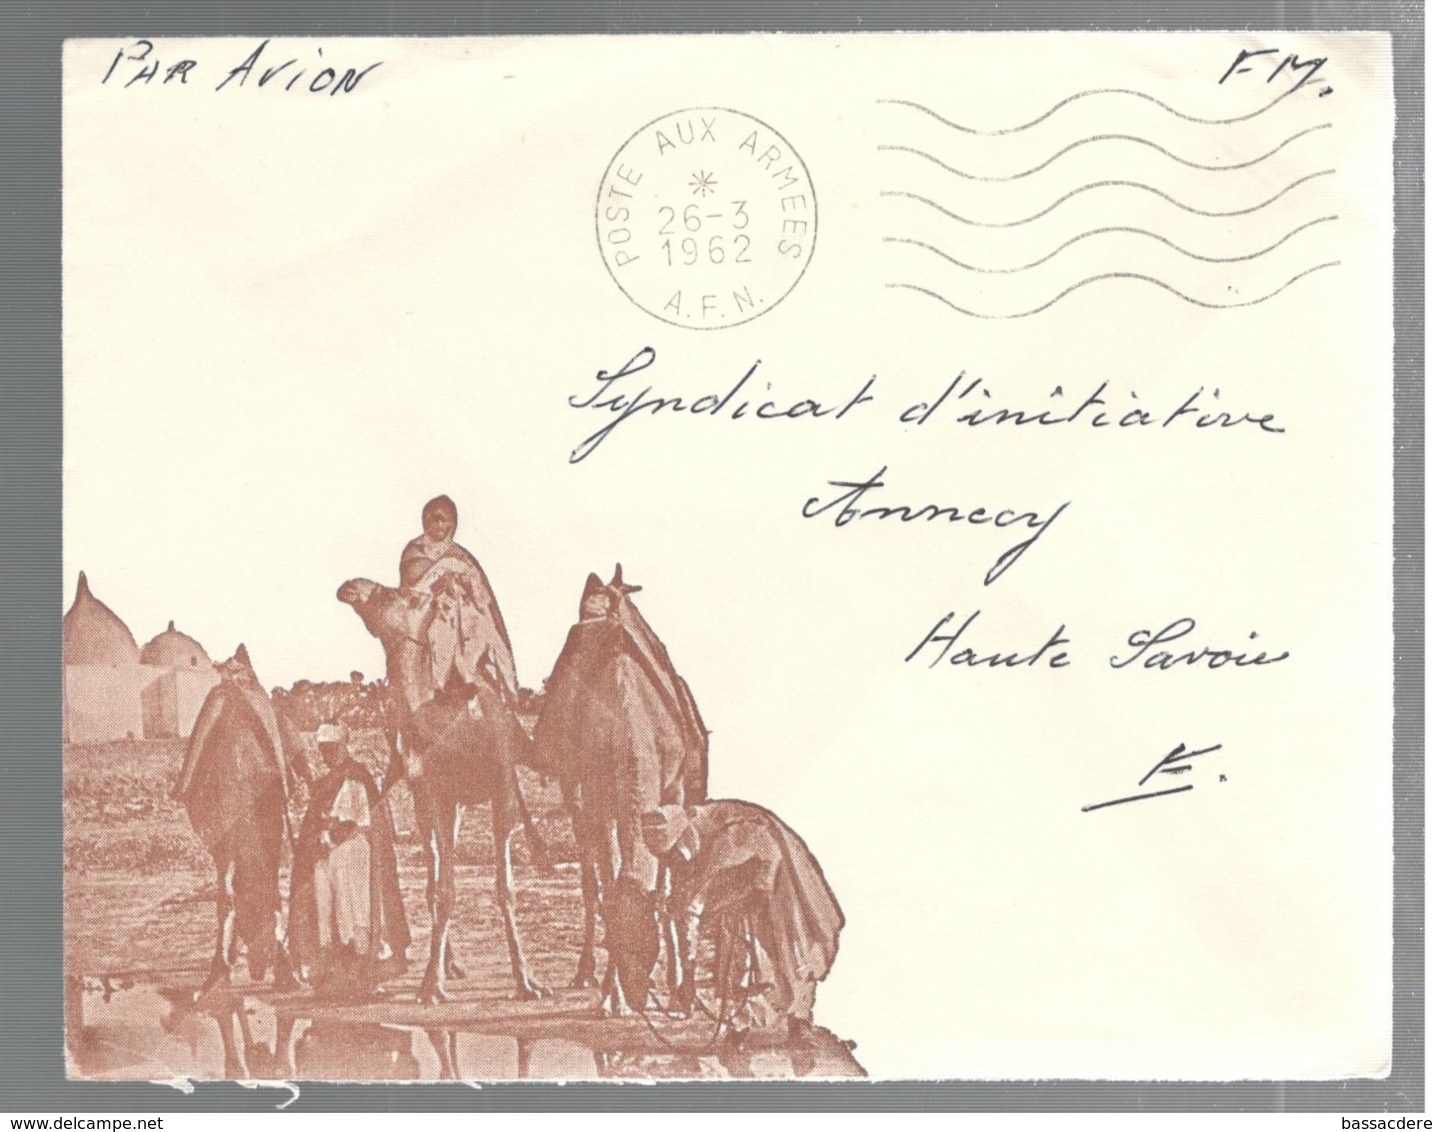 PAR AVION
FM.
POSTE AUX ARMEES
*
26-3
1962
A.F.N.
Syndicat d'initiative
Annecy
Haute Savoie
F.
delcampe.net
bassacdere